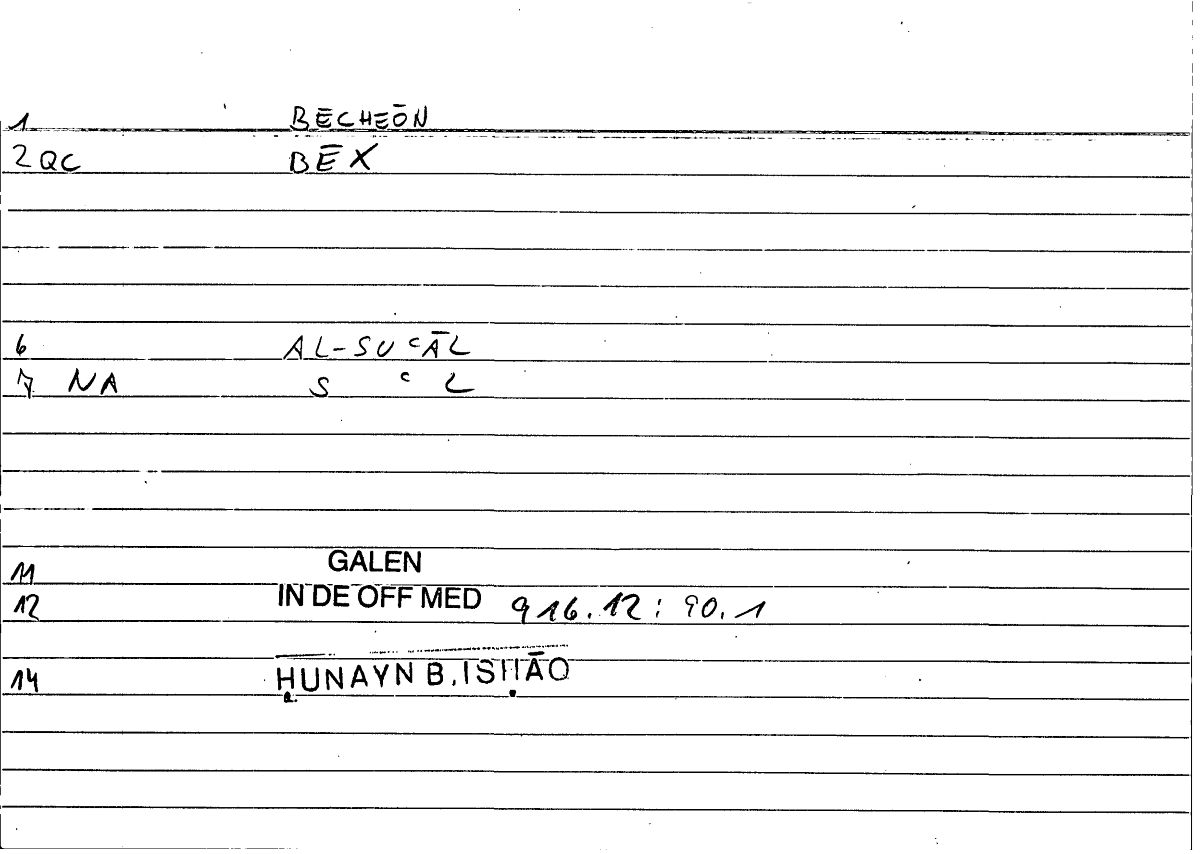 1 BĒCHEŌN
2 QC BĒX
6 AL-SU ͨĀL
7 NA S ͨ L
11 GALEN
12 IN DE OFF MED 916.12: 90.1
14 ḤUNAYN B. ISḤĀQ